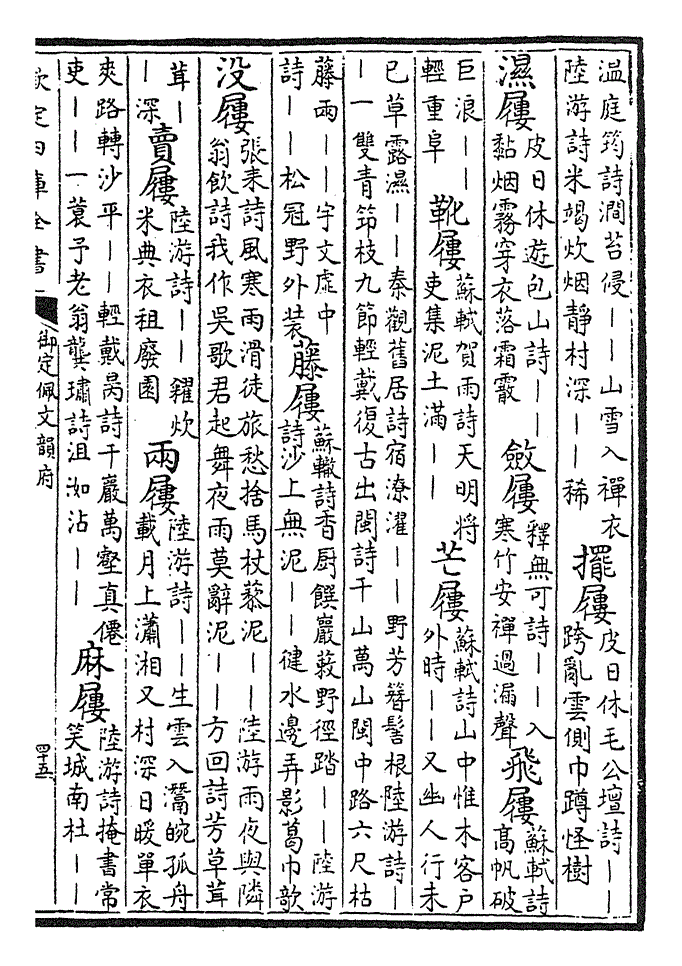 温庭筠詩澗苔侵丨丨山雪入禪衣陸游詩米竭炊烟靜村深丨丨稀 擺屨 皮日休毛公壇詩丨丨跨亂雲側巾蹲怪樹
濕屨 皮日休遊包山詩丨丨黏烟霧穿衣落霜霰 斂屨 釋無可詩丨丨入寒竹安禪過漏聲 飛屨 蘇軾詩高帆破
巨浪丨丨輕重阜 靴屨 蘇軾賀雨詩天明將吏集泥土滿丨丨 芒屨 蘇軾詩山中惟木客戶外時丨丨又幽人行未
已草露濕丨丨秦觀舊居詩宿潦濯丨丨野芳簪髻根陸游詩丨丨一雙青笻枝九節輕戴復古出閩詩千山萬山閩中路六尺枯
藤兩丨丨宇文虛中詩丨丨松冠野外裝 藤屨 蘇轍詩香厨饌巖蔌野徑踏丨丨陸游詩沙上無泥丨丨健水邊弄影葛巾欹
没屨 張耒詩風寒雨滑徒旅愁捨馬杖藜泥丨丨陸游雨夜與隣翁飲詩我作吳歌君起舞夜雨莫辭泥丨丨方回詩芳草茸
茸丨丨深 賣屨 陸游詩丨丨糴炊米典衣租廢園 兩屨 陸游詩丨丨生雲入灊皖孤舟載月上瀟湘又村深日暖單衣
爽路轉沙平丨丨輕戴昺詩千巖萬壑真僊吏丨丨一蓑予老翁龔璛詩沮洳沾丨丨 麻屨 陸游詩掩書常笑城南杜丨丨
欽定四庫全書 御定佩文韻府 四十五